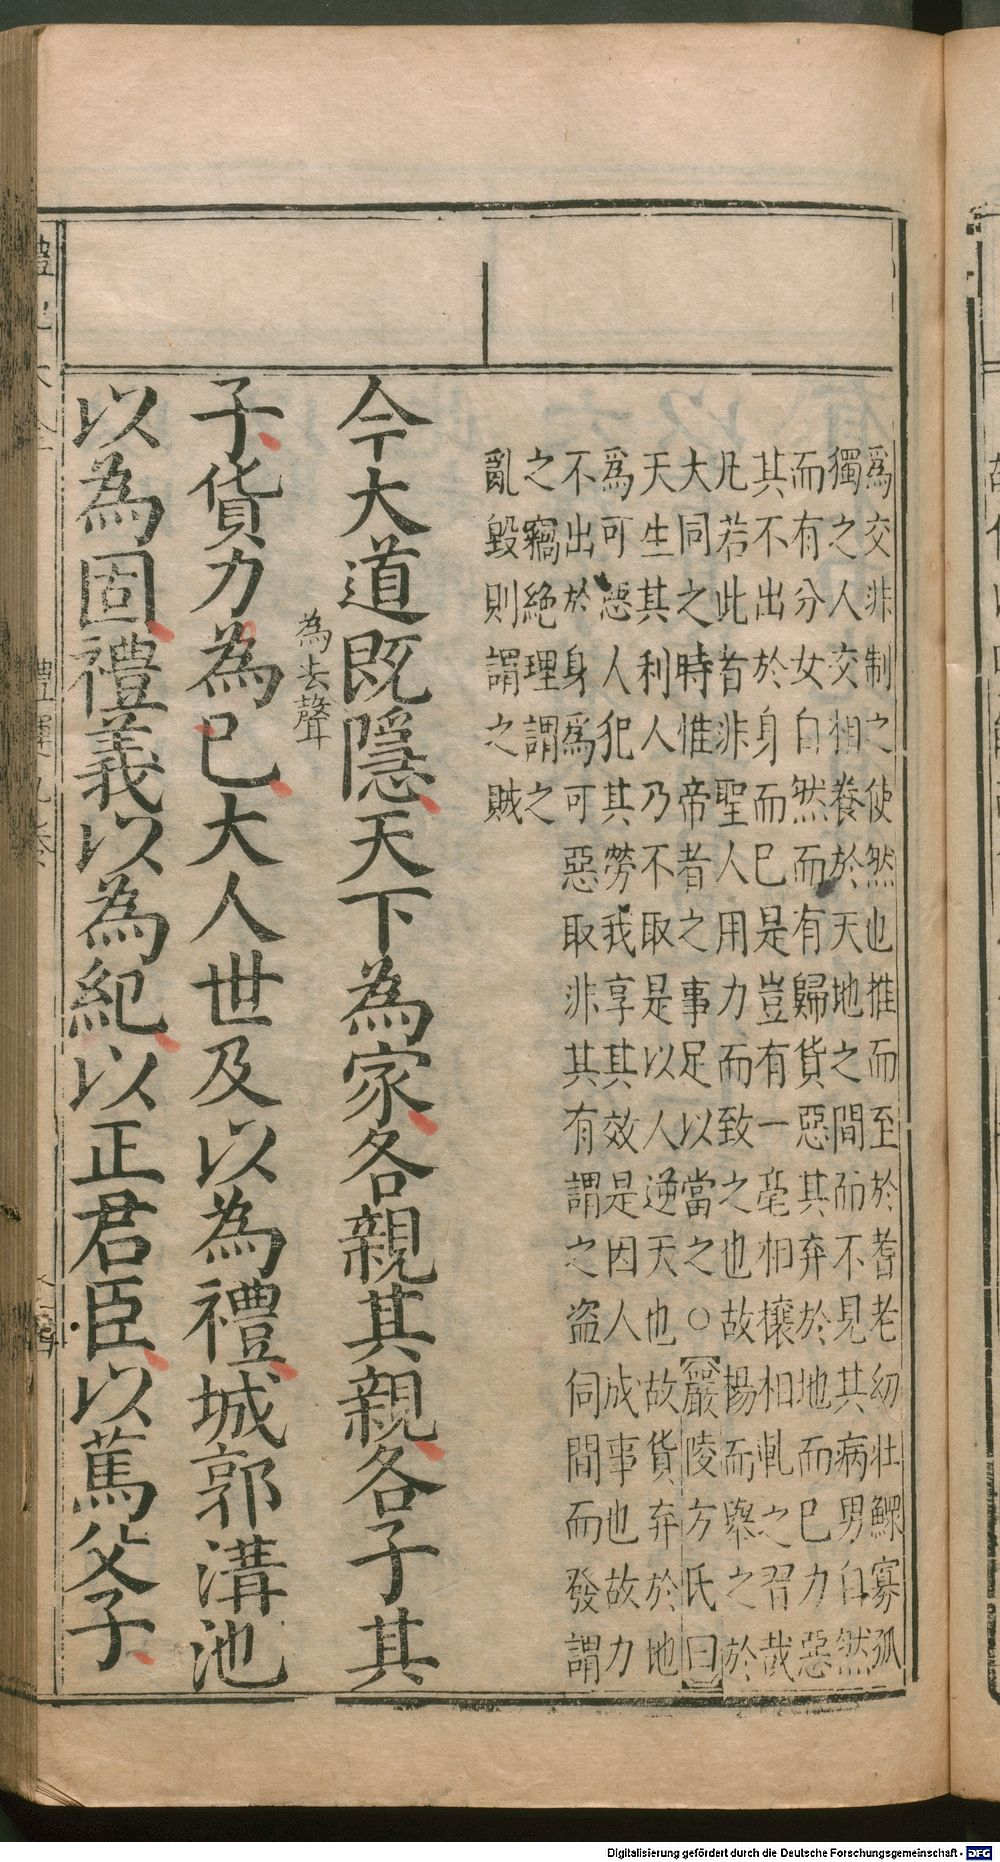 爲交非制之使然也推而至於耆老幼壯鰥寡孤
獨之人交相養於天地之間而不見其病男自然
而有分女自然而有歸貨惡其弃於地而已力惡
其不出於身而已是豈有一毫相攘相軋之習哉
凡若此者非聖人用力而致之也故揚而舉之於
大同之時惟帝者之事足以當之○嚴陵方氏曰
天生其利人乃不取是以人逆天也故貨弃於地
爲可惡人犯其勞我享其效是因人成事也故力
不出於身爲可惡取非其有謂之盗伺間而發謂
之竊絶理謂之
亂毀則謂之賊
今大道既隱天下為家各親其親各子其
為去聲
子貨力為已大人世及以為禮城郭溝池
以為固禮義以為紀以正君臣以篤父子
Digitalisierung gefördert durch die Deutsche Forschungsgemeinschaft - DFG